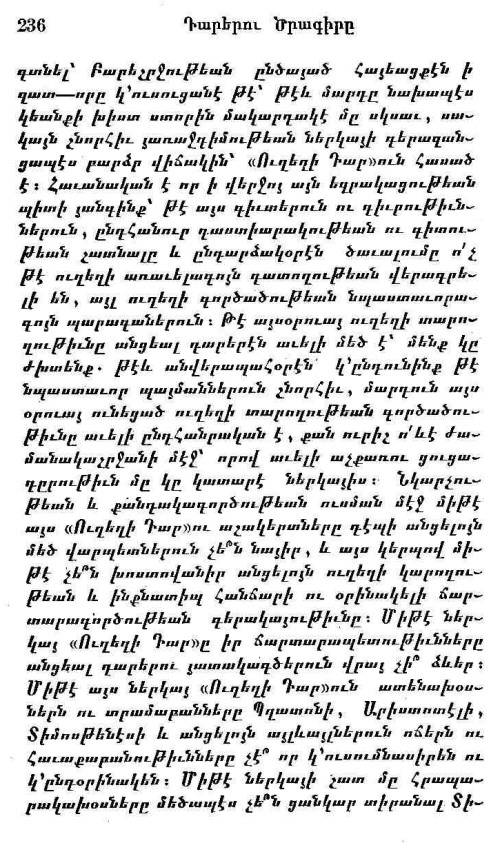 236 Դարերու Ծրագիրը
գտնել՝ Բարեշրջութեան ընծայած Հայեացքէն ի
զատ—որը կ՚ուսուցանէ թէ՝ թէև մարդը նախապէս
կեանքի խիստ ստորին մակարդակէ մը սկսաւ, սա-
կայն շնորհիւ յառաջդիմութեան ներկայի գերազան-
ցապէս բարձր վիճակին՝ «Ուղեղի Դար»ուն հասած
է։ Հաւանական է որ ի վերջոյ այն եզրակացութեան
պիտի յանգինք՝ թէ այս գիւտերուն ու գիւրութիւն-
ներուն, ընդհանուր դաստիարակութեան ու գիտու-
թեան շատնալը և ընդարձակօրէն ծաւալումը ո՛չ
թէ ուղեղի առաւելագոյն դատողութեան վերագրե-
լի են, այլ ուղեղի գործածութեան նպաստաւորա-
գոյն պարագաներուն։ Թէ այսօրուայ ուղեղի տարո-
ղութիւնը անցեալ դարերէն աւելի մեծ է՝ մենք կը
ժխտենք. թէև անվերապահօրէն կ՚ընդունինք թէ
նպաստաւոր պայմաններուն շնորհիւ, մարդուն այս
օրուայ ունեցած ուղեղի տարողութեան գործածու-
թիւնը աւելի ընդհանրական է, քան ուրիշ ո՛ևէ ժա-
մանակաշրջանի մէջ՝ որով աւելի աչքառու ցուցա-
դըրութիւն մը կը կատարէ ներկայիս։ Նկարչու-
թեան և քանդակագործութեան ուսման մէջ միթէ
այս «Ուղեղի Դար»ու աշակերտները դէպի անցելոյն
մեծ վարպետներուն չե՞ն նայիր, և այս կերպով մի-
թէ չե՞ն խոստովանիր անցելոյն ուղեղի կարողու-
թեան և ինքնատիպ հանճարի ու օրինակելի ճար-
տարագործութեան գերակայութիւնը։ Միթէ ներ-
կայ «Ուղեղի Դար»ը իր ճարտարապետութիւնները
անցեալ դարերու յատակագծերուն վրայ չի՞ ձևեր։
Միթէ այս ներկայ «Ուղեղի Դար»ուն ատենախօս-
ներն ու տրամաբանները Պղատոնի, Արիստոտէլի,
Տիմոսթենէսի և անցելոյն այլևայլներուն ոճերն ու
Հաւաքաբանութիւնները չէ՞ որ կ՚ուսումնասիրեն ու
կ՚ընդօրինակեն։ Միթէ ներկայի շատ մը հրապա-
րակախօսները մեծապէս չե՞ն ցանկար տիրանալ Տի-